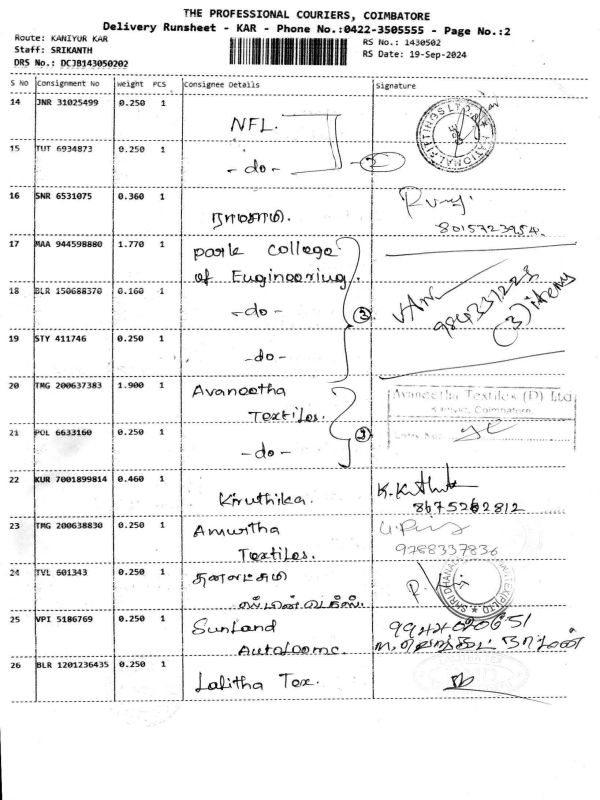 THE PROFESSIONAL COURIERS, COIMBATORE
Delivery Runsheet - KAR - Phone No.:0422-3505555 - Page No.:2
Route: KANIYUR KAR
RS No.: 1430502
Staff: SRIKANTH
RS Date: 19-Sep-2024
DRS No.: DCJB143050202
S No Consignment No Weight PCS Consignee Details Signature
14 JNR 31025499 0.250 1
NFL.
15 TUT 6934873 0.250 1
-do- 2
16 SNR 6531075 0.360 1
ராமசாமி.
8015723954.
17 MAA 944598880 1.770 1 park college
of Engineering.
18 BLR 150688370 0.160 1
-do- 3
(3) items
19 STY 411746 0.250 1
-do-
20 TMG 200637383 1.900 1 Avaneetha
Textiles.
Avaneetha Textiles (P) Ltd
Kaniyur, Coimbatore.
21 POL 6633160 0.250 1
-do-
22 KUR 7001899814 0.460 1
Kiruthika.
8675262812
23 TMG 200638830 0.250 1 Amurtha
Textiles.
9788337836
24 TVL 601343 0.250 1 தனலட்சுமி
25 VPI 5186769 0.250 1 SunLand
26 BLR 1201236435 0.250 1
Lalitha Tex.